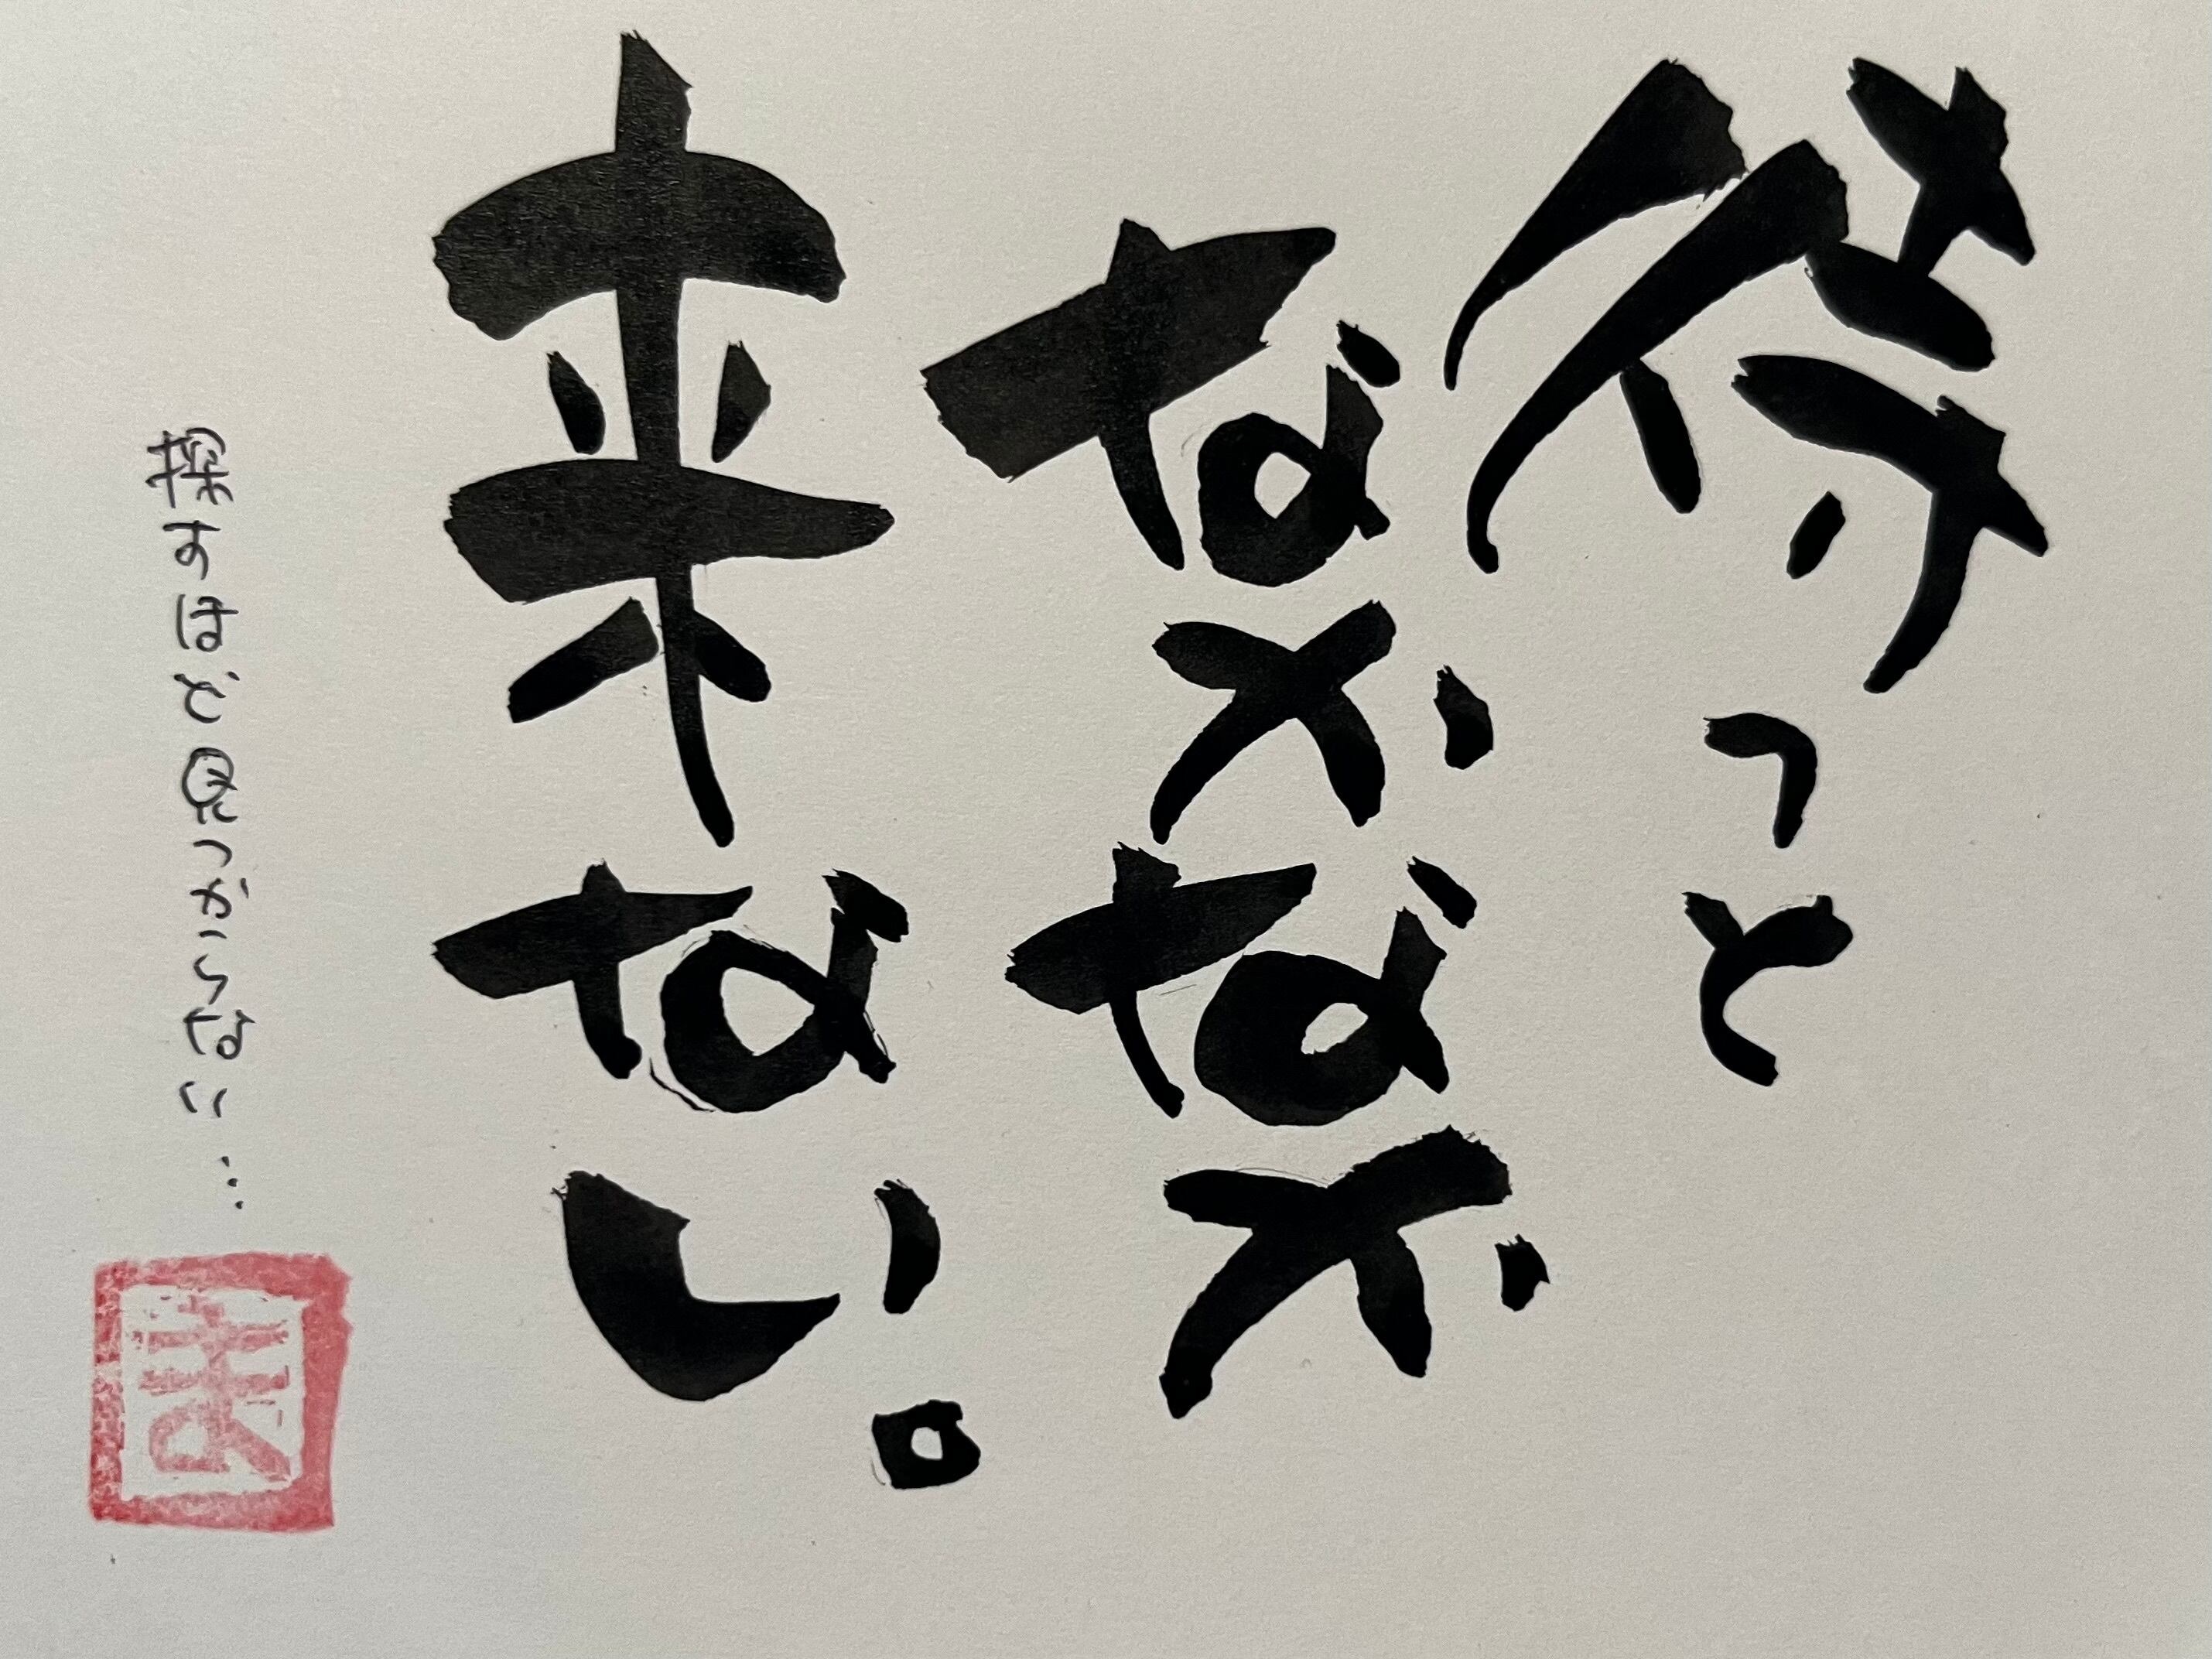 待っと
なかなか
来ない。
探すほど見つからない…